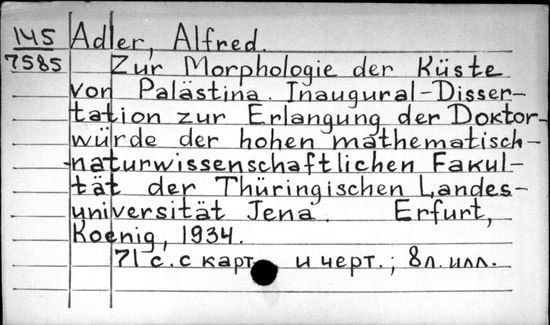 145 Adler, Alfred.
7585 Zur Morphologie der Küste
von Palästina. Inaugural-Disser-
tation zur Erlangung der Doktor-
würde der hohen mathematisch-
-naturwissenschaftlichen Fakul-
tät der Thüringischen Landes-
universität Jena. Erfurt,
Koenig, 1934.
71 с. с карт. и черт.; 8л. илл.